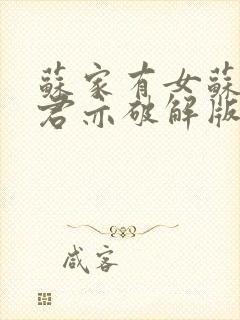 蘇家有女蘇
君亦破解版
咸客